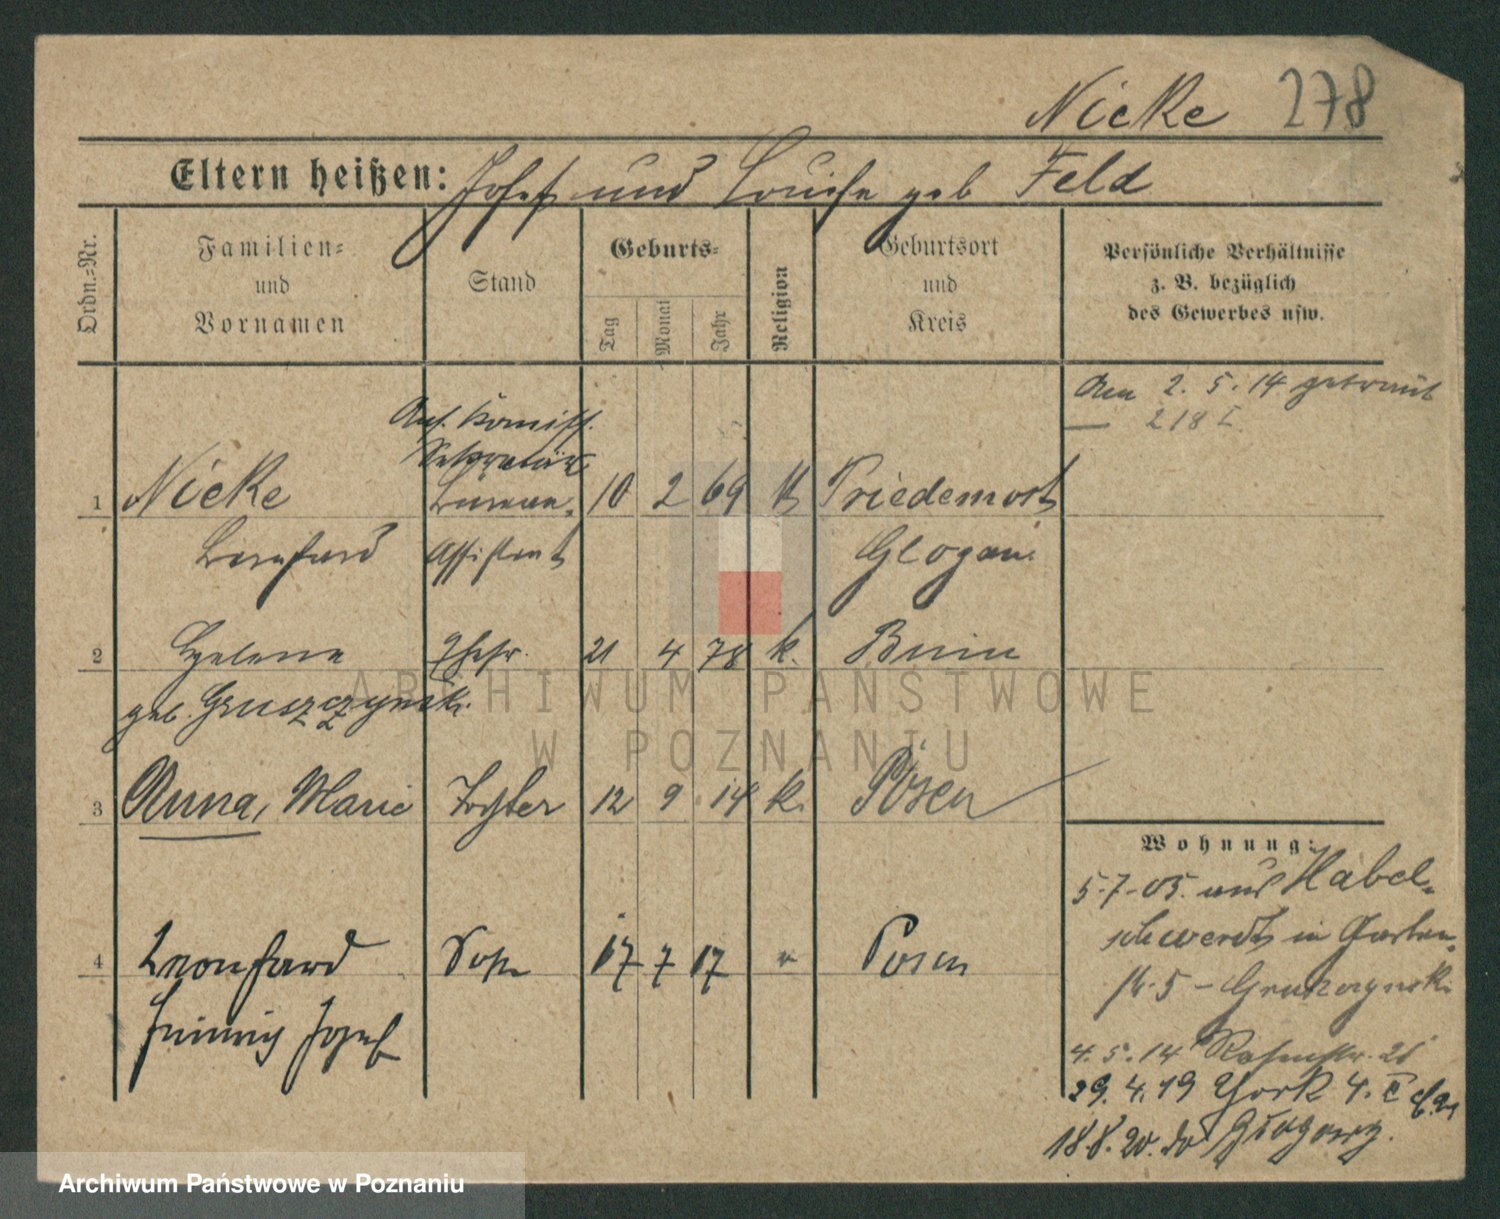 Nicke 278
Eltern heißen: Josef und Louise geb Feld
Ordn.=Nr.
Familien=
und
Vornamen
Stand
Geburts=
Tag
Monat
Jahr
Religion
Geburtsort
und
Kreis
Persönliche Verhältnisse
z. B. bezüglich
des Gewerbes usw.
Am 2. 5. 14 getraut
218 I.
Ans. Komiss.
Sekretär
1 Nicke Bureau= 10 2 69 k Priedemost
Bernhard Assistent Glogau.
2 Helene Ehefr. 21 4 78 k. Bnin
geb. Gruszczynski
3 Anna, Marie Tochter 12 9 14 k. Posen
4 Leonhard Sohn 17 7 17 " Posen
Heinrich Josef
Wohnung:
5-7-05. aus Habel=
schwerdt in Garten=
str. 5 - Gruszczynski
4. 5. 14 Rosenstr.
29. 4. 19 York 4.
18.8.20.
ARCHIWUM PAŃSTWOWE
W POZNANIU
Archiwum Państwowe w Poznaniu